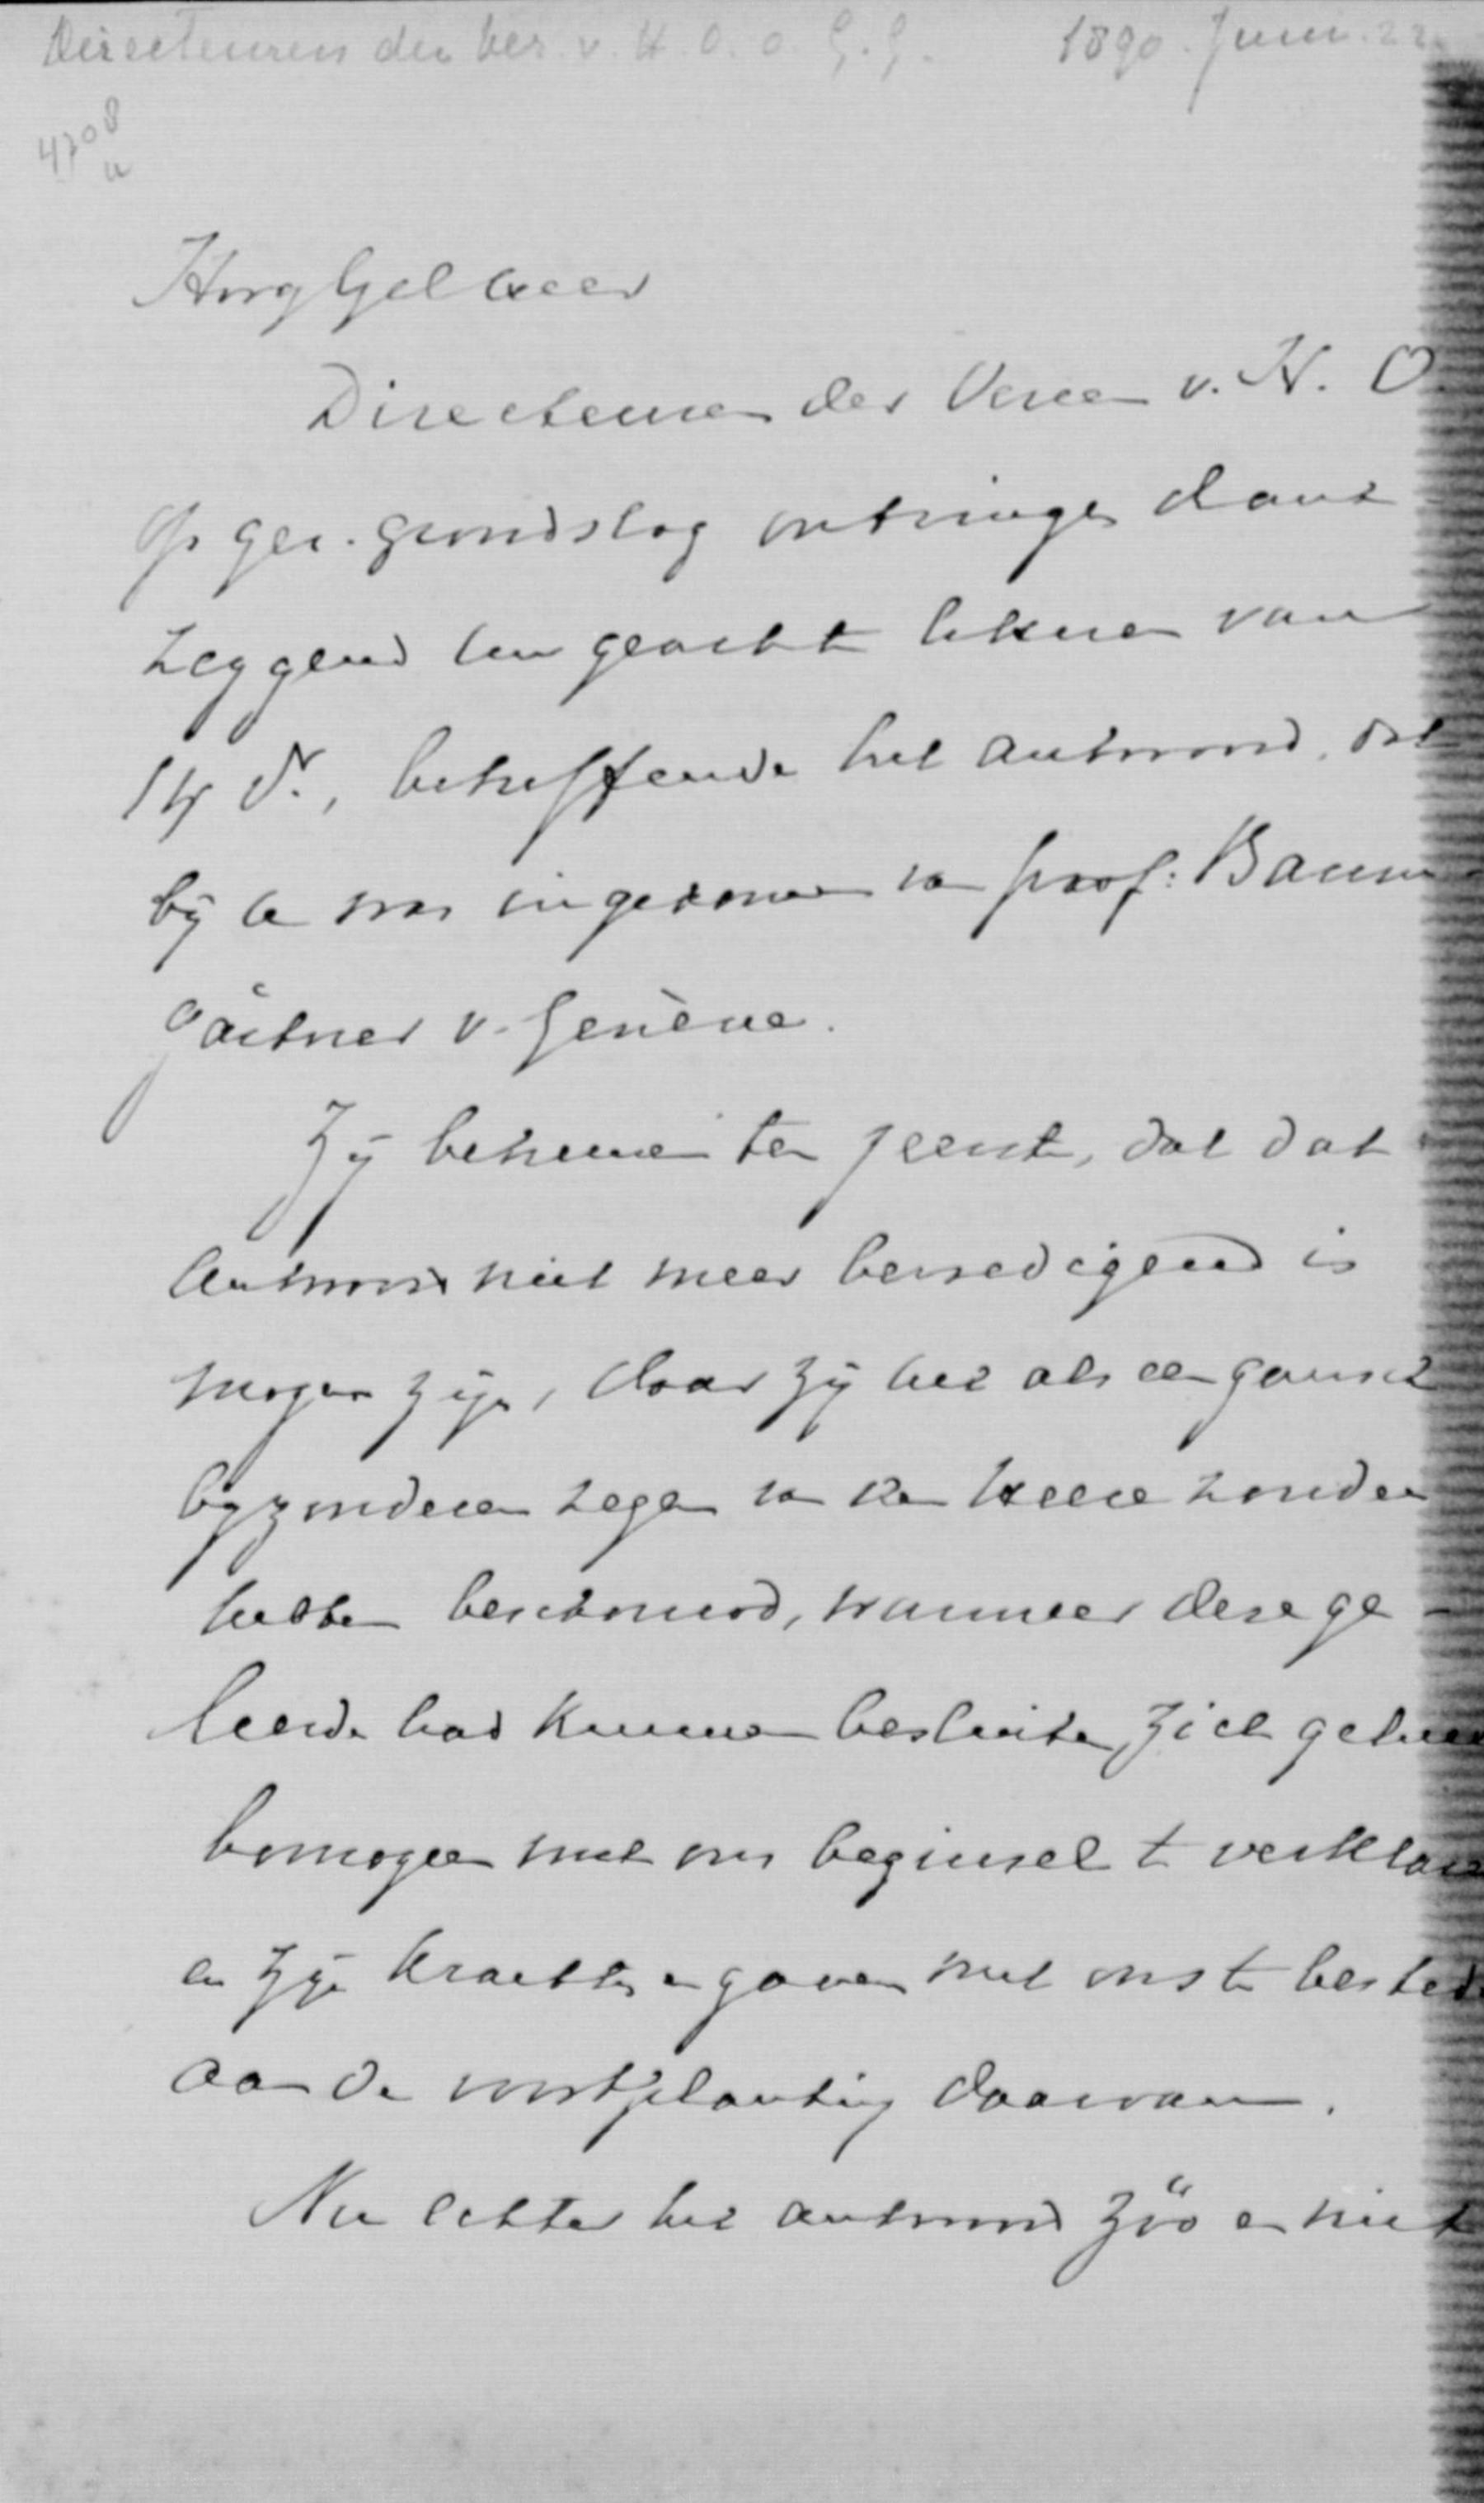 Directeuren der Ver. v. H. O. o. G. G. 1890. Juni. 22.
4708
a
HoogGel Heer
Directeuren der Vereen v. H. O.
op ger. grondslag ontvingen dank-
zeggend uw geacht schrijven van
14 dr., betreffende het antwoord, dat
bij u was ingekomen van prof: Baum-
gärtner v. Genève.
Zij betreuren ten zeerste, dat dat
antwoord niet meer bevredigend is
mogen zijn, daar zij het als een gansch
byzonderen zegen van den Heere zouden
hebben beschouwd, wanneer deze ge-
leerde had kunnen besluiten, zich geheel
homogeen met ons beginsel te verklaren
en zijn krachten en gaven met ons te besteden
aan de voortplanting daarvan.
Nu echter het antwoord zóó en niet